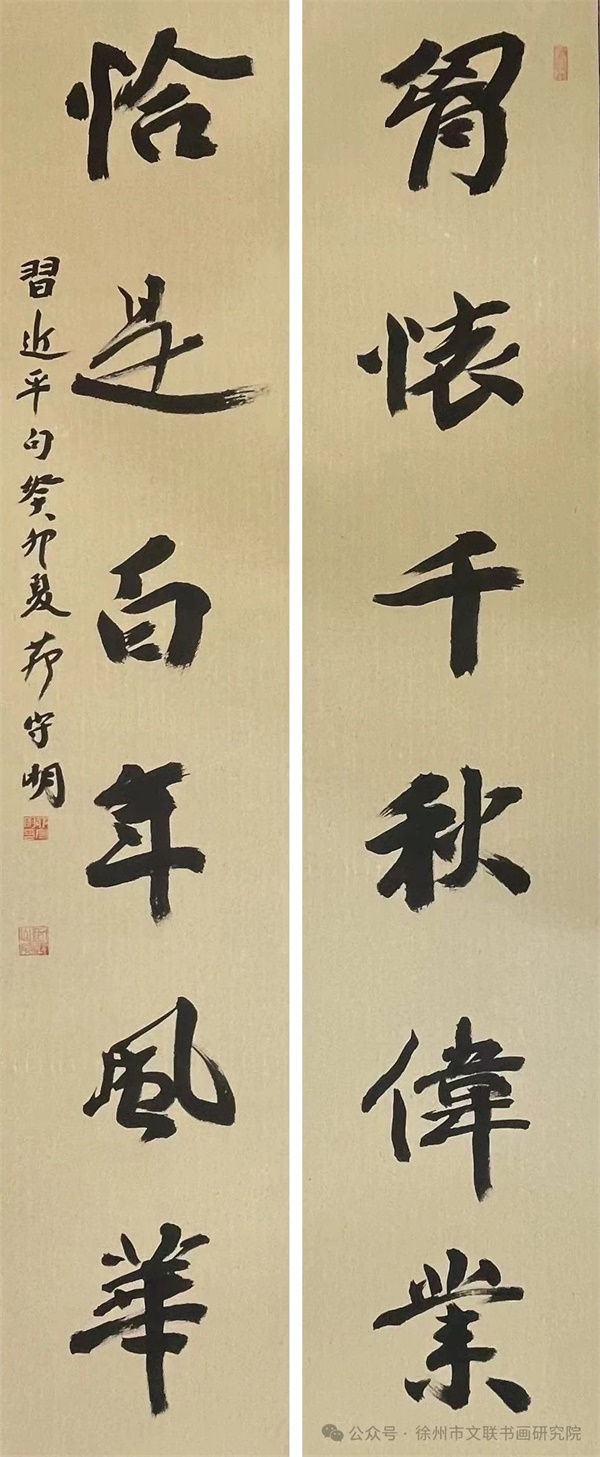 胷懷千秋偉業
恰是百年風華
習近平句癸卯夏茆守明
公众号·徐州市文联书画研究院